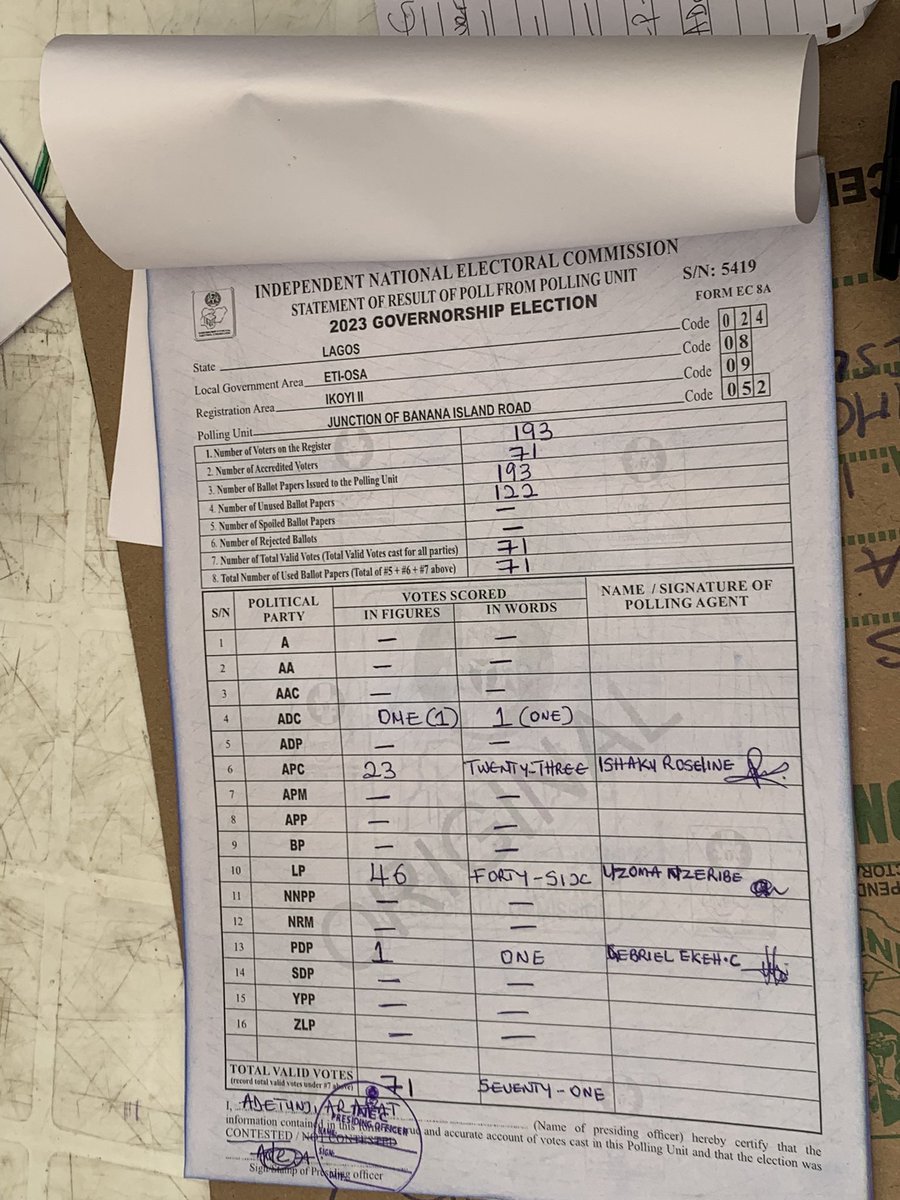 INDEPENDENT NATIONAL ELECTORAL COMMISSION
STATEMENT OF RESULT OF POLL FROM POLLING UNIT S/N: 5419
2023 GOVERNORSHIP ELECTION FORM EC 8A
State LAGOS Code 024
Local Government Area ETI-OSA Code 08
Registration Area IKOYI II Code 09
Polling Unit JUNCTION OF BANANA ISLAND ROAD Code 052
1. Number of Voters on the Register 193
2. Number of Accredited Voters 71
3. Number of Ballot Papers Issued to the Polling Unit 193
4. Number of Unused Ballot Papers 122
5. Number of Spoiled Ballot Papers —
6. Number of Rejected Ballots —
7. Number of Total Valid Votes (Total Valid Votes cast for all parties) 71
8. Total Number of Used Ballot Papers (Total of #5 + #6 + #7 above) 71
S/N POLITICAL PARTY VOTES SCORED NAME / SIGNATURE OF POLLING AGENT
IN FIGURES IN WORDS
1 A — —
2 AA — —
3 AAC — —
4 ADC ONE (1) 1 (ONE)
5 ADP — —
6 APC 23 TWENTY-THREE ISHAKU ROSELINE
7 APM — —
8 APP — —
9 BP — —
10 LP 46 FORTY-SIX UZOMA NZERIBE
11 NNPP — —
12 NRM — —
13 PDP 1 ONE EKEH.C
14 SDP — —
15 YPP — —
16 ZLP — —
TOTAL VALID VOTES 71 SEVENTY-ONE
(record total valid votes under #7 above)
I, ADETUNJI (Name of presiding officer) hereby certify that the
information contained in this true and accurate account of votes cast in this Polling Unit and that the election was
CONTESTED / NOT CONTESTED
Sign/Stamp of Presiding officer
INEC
PRESIDING OFFICER
NAME:
SIGN:
ORIGINAL